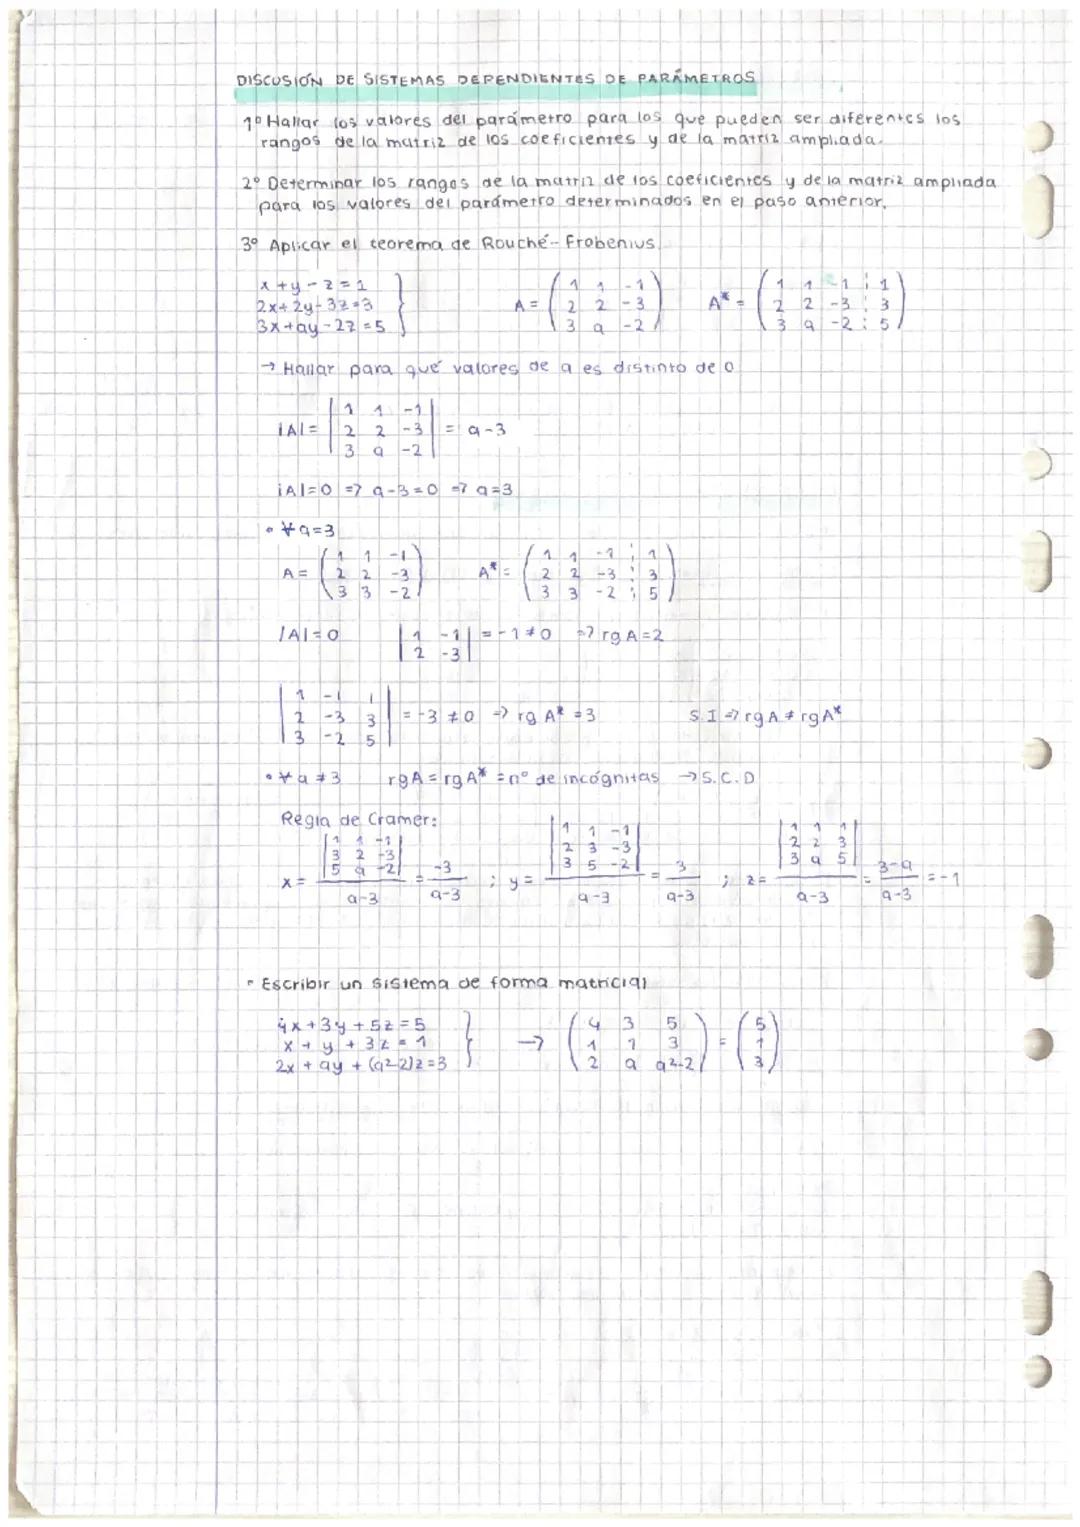 DISCUSIÓN DE SISTEMAS DEPENDIENTES DE PARÁMETROS
1º Hallar los valores del parámetro para los que pueden ser diferentes los
rangos de la matriz de los coeficientes y de la matriz ampliada.
2º Determinar los rangos de la matriz de los coeficientes y de la matriz ampliada
para los valores del parámetro determinados en el paso anterior.
3º Aplicar el teorema de Rouché-Frobenius.
x + y - z = 1
2x + 2y - 3z = 3
3x + ay - 2z = 5
A = ( 1 1 -1
2 2 -3
3 a -2 )
A* = ( 1 1 -1 ⋮ 1
2 2 -3 ⋮ 3
3 a -2 ⋮ 5 )
→ Hallar para qué valores de a es distinto de 0
|A| = | 1 1 -1
2 2 -3
3 a -2 | = a-3
|A|=0 => a-3=0 => a=3
• ∀ a=3
A = ( 1 1 -1
2 2 -3
3 3 -2 )
A* = ( 1 1 -1 ⋮ 1
2 2 -3 ⋮ 3
3 3 -2 ⋮ 5 )
|A|=0
| 1 -1
2 -3 | = -1 ≠ 0 => rg A=2
| 1 -1 1
2 -3 3
3 -2 5 | = -3 ≠ 0 => rg A* = 3
S.I => rg A ≠ rg A*
• ∀ a ≠ 3 rg A = rg A* = nº de incógnitas → S.C.D
Regla de Cramer:
x = | 1 1 -1
3 2 -3
5 a -2 | / a-3 = -3 / a-3 ;
y = | 1 1 -1
2 3 -3
3 5 -2 | / a-3 = 3 / a-3 ;
z = | 1 1 1
2 2 3
3 a 5 | / a-3 = 3-a / a-3 = -1
• Escribir un sistema de forma matricial
4x + 3y + 5z = 5
x + y + 3z = 1
2x + ay + (a²-2)z = 3
→ ( 4 3 5
1 1 3
2 a a²-2 ) = ( 5
1
3 )